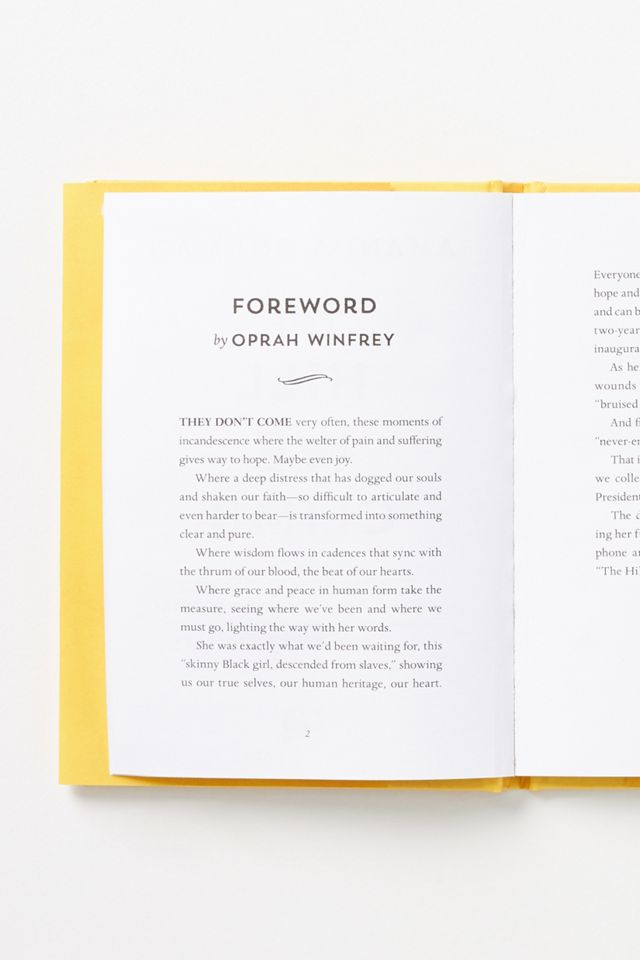 FOREWORD
by OPRAH WINFREY
THEY DON'T COME very often, these moments of
incandescence where the welter of pain and suffering
gives way to hope. Maybe even joy.
Where a deep distress that has dogged our souls
and shaken our faith—so difficult to articulate and
even harder to bear—is transformed into something
clear and pure.
Where wisdom flows in cadences that sync with
the thrum of our blood, the beat of our hearts.
Where grace and peace in human form take the
measure, seeing where we've been and where we
must go, lighting the way with her words.
She was exactly what we'd been waiting for, this
"skinny Black girl, descended from slaves," showing
us our true selves, our human heritage, our heart.
2
Everyone
hope and
and can b
two-year
inaugura
As he
wounds
"bruised
And fi
"never-en
That i
we colle
President
The d
ing her f
phone an
"The Hil